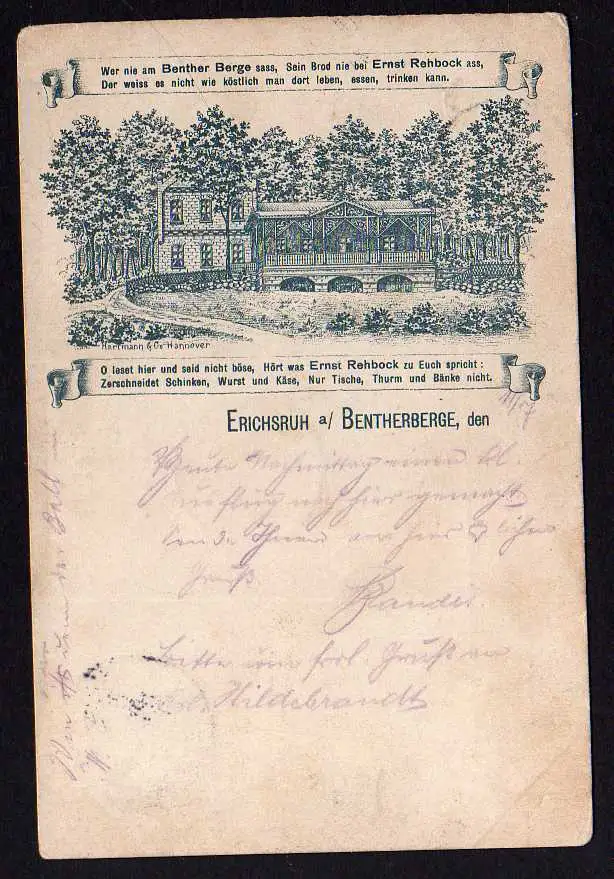 Wer nie am Benther Berge sass, Sein Brod nie bei Ernst Rehbock ass,
Der weiss es nicht wie köstlich man dort leben, essen, trinken kann.
Hartmann & Co Hannover
O leset hier und seid nicht böse, Hört was Ernst Rehbock zu Euch spricht:
Zerschneidet Schinken, Wurst und Käse, Nur Tische, Thurm und Bänke nicht.
ERICHSRUH a/ BENTHERBERGE, den
Heute Nachmittag einen
nach hier gemacht
Sende Ihnen von hier
Gruß
Bitte um frdl. Gruß an
Hildebrandt